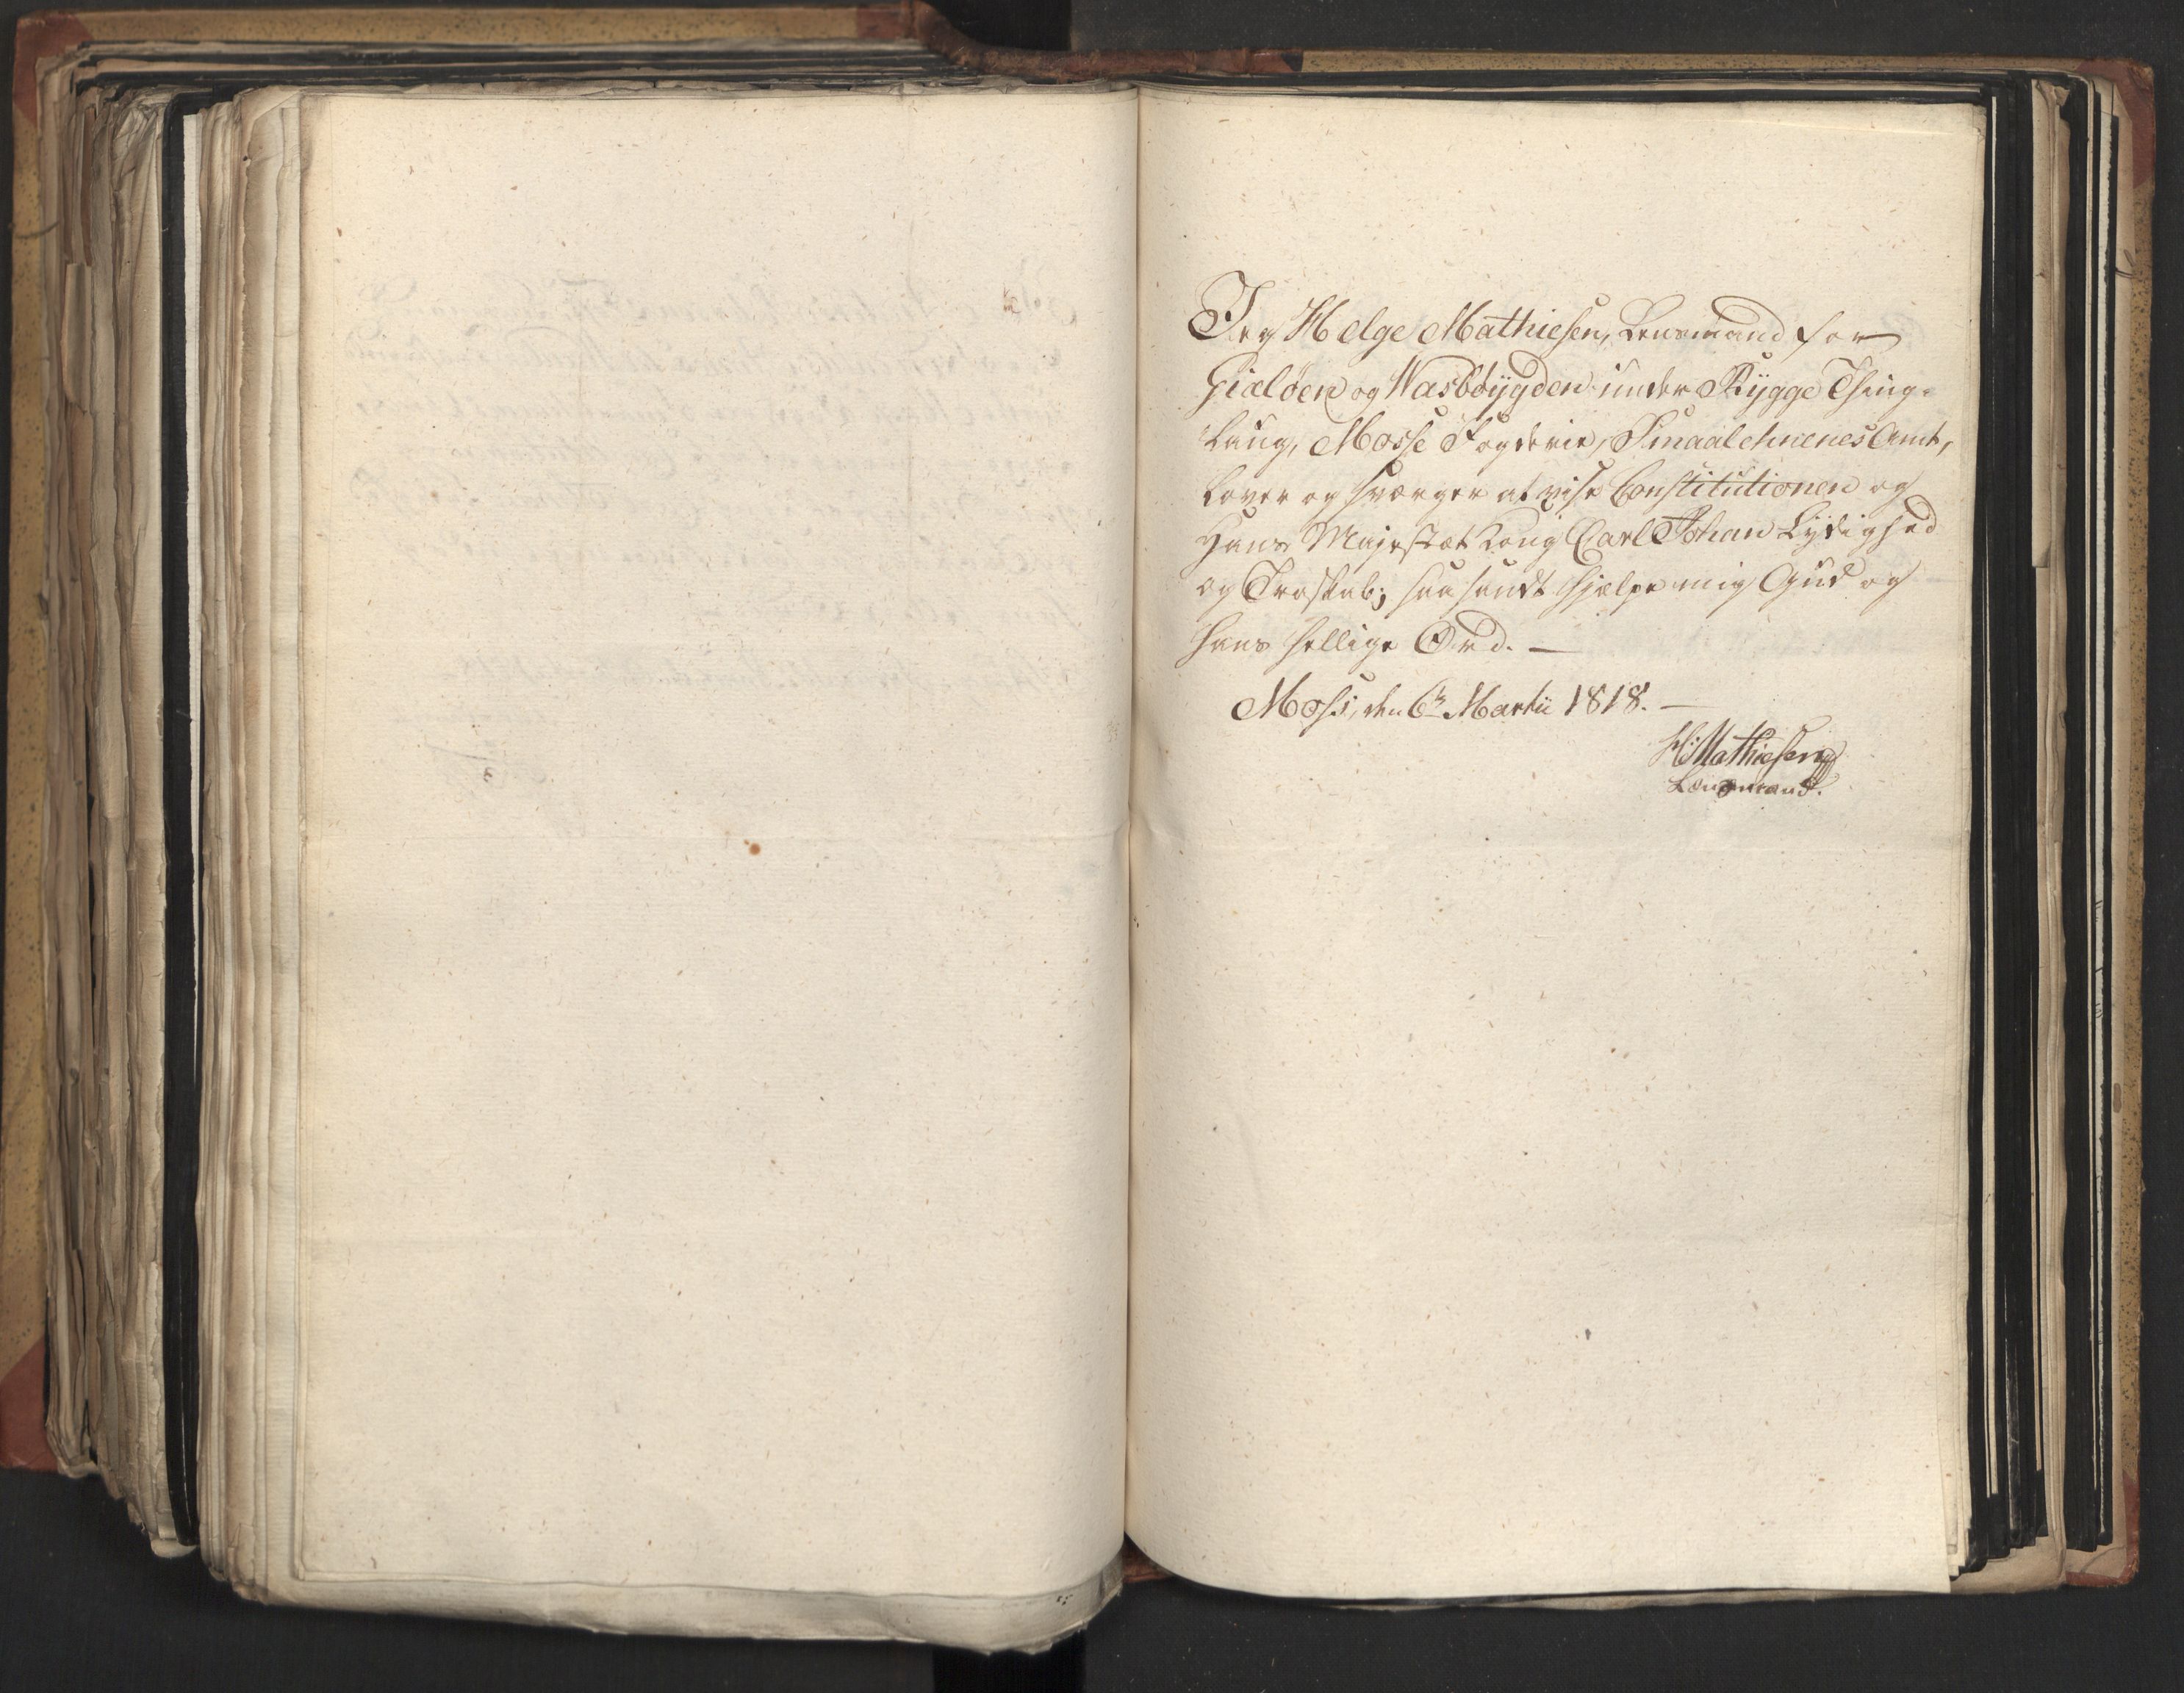 Jeg Helge Mathiesen, Lensmand for
Gialøen og Wasbøygden under Rygge Thing-
laug, Mosse Fogderie, Smaalehnenes Amt,
lover og sværger at vise Constitutionen og
Hans Majestæt Kong Carl Johan Lydighed
og Troskab; saa sandt hjelpe mig Gud og
hans hellige Ord. —
Moss, den 6te Martii 1818. —
H: Mathiesen
Lænsmand.